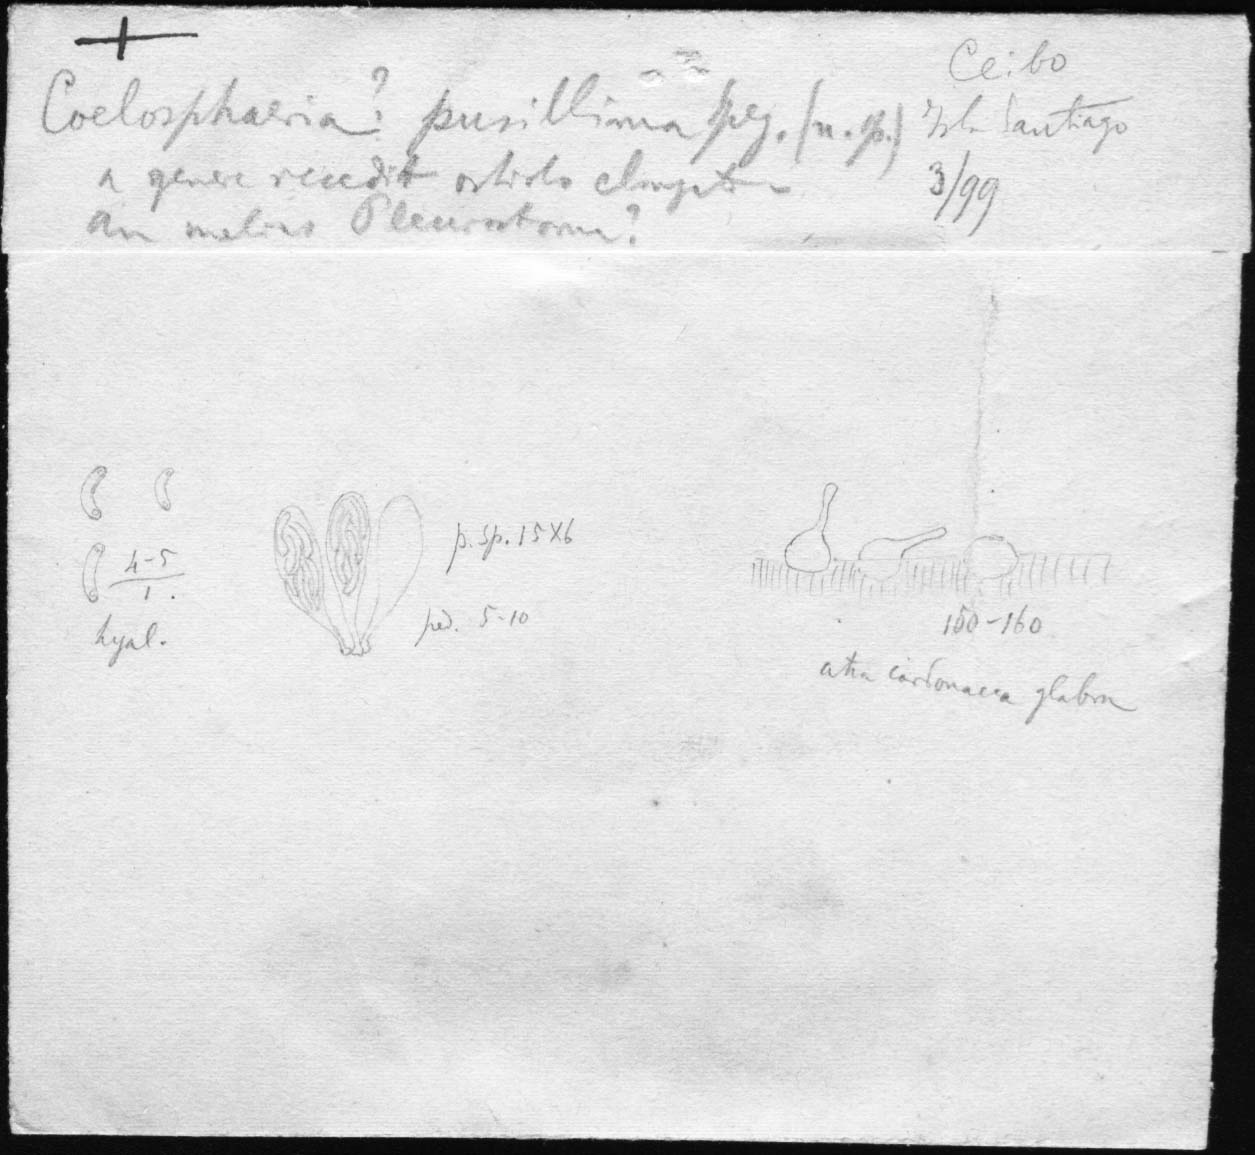 Ceibo
Coelosphaeria? pusillima Speg. (n. sp.)
Isla Santiago
a genere recedit ostiolo elongato
3/99
an melius Pleurostoma?
4-5
1.
hyal.
p. sp. 15X6
ped. 5-10
150-160
atra carbonacea glabra